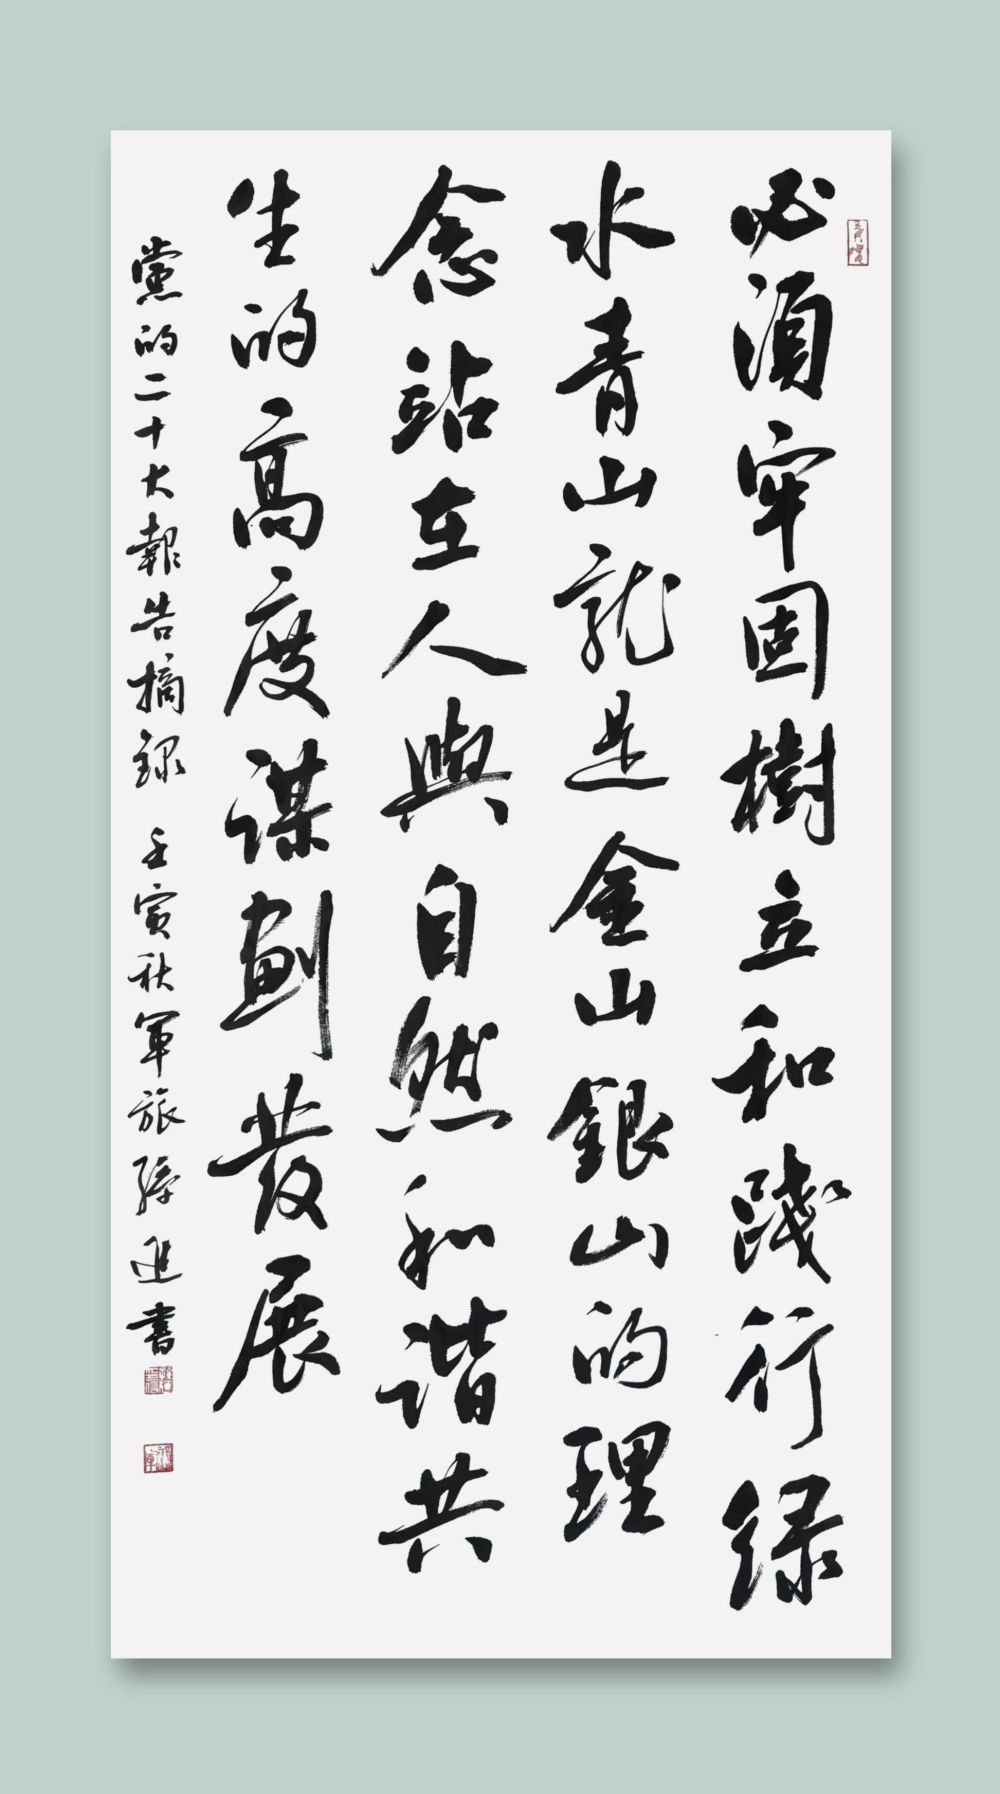 必須牢固樹立和踐行緑
水青山就是金山銀山的理
念站在人與自然和諧共
生的高度謀劃發展
黨的二十大報告摘録 壬寅秋軍旅 進書